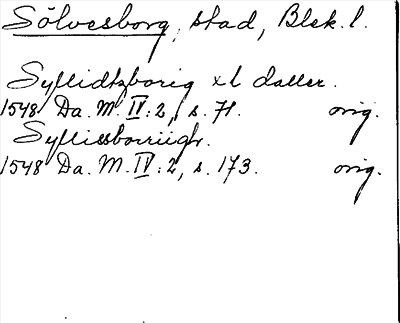 Sölvesborg, stad, Blek. l.
Syllidtzborig xl daller.
1548 Da. M. IV: 2, s. 71. orig.
Syllissborriigh.
1548 Da. M. IV: 2, s. 173. orig.